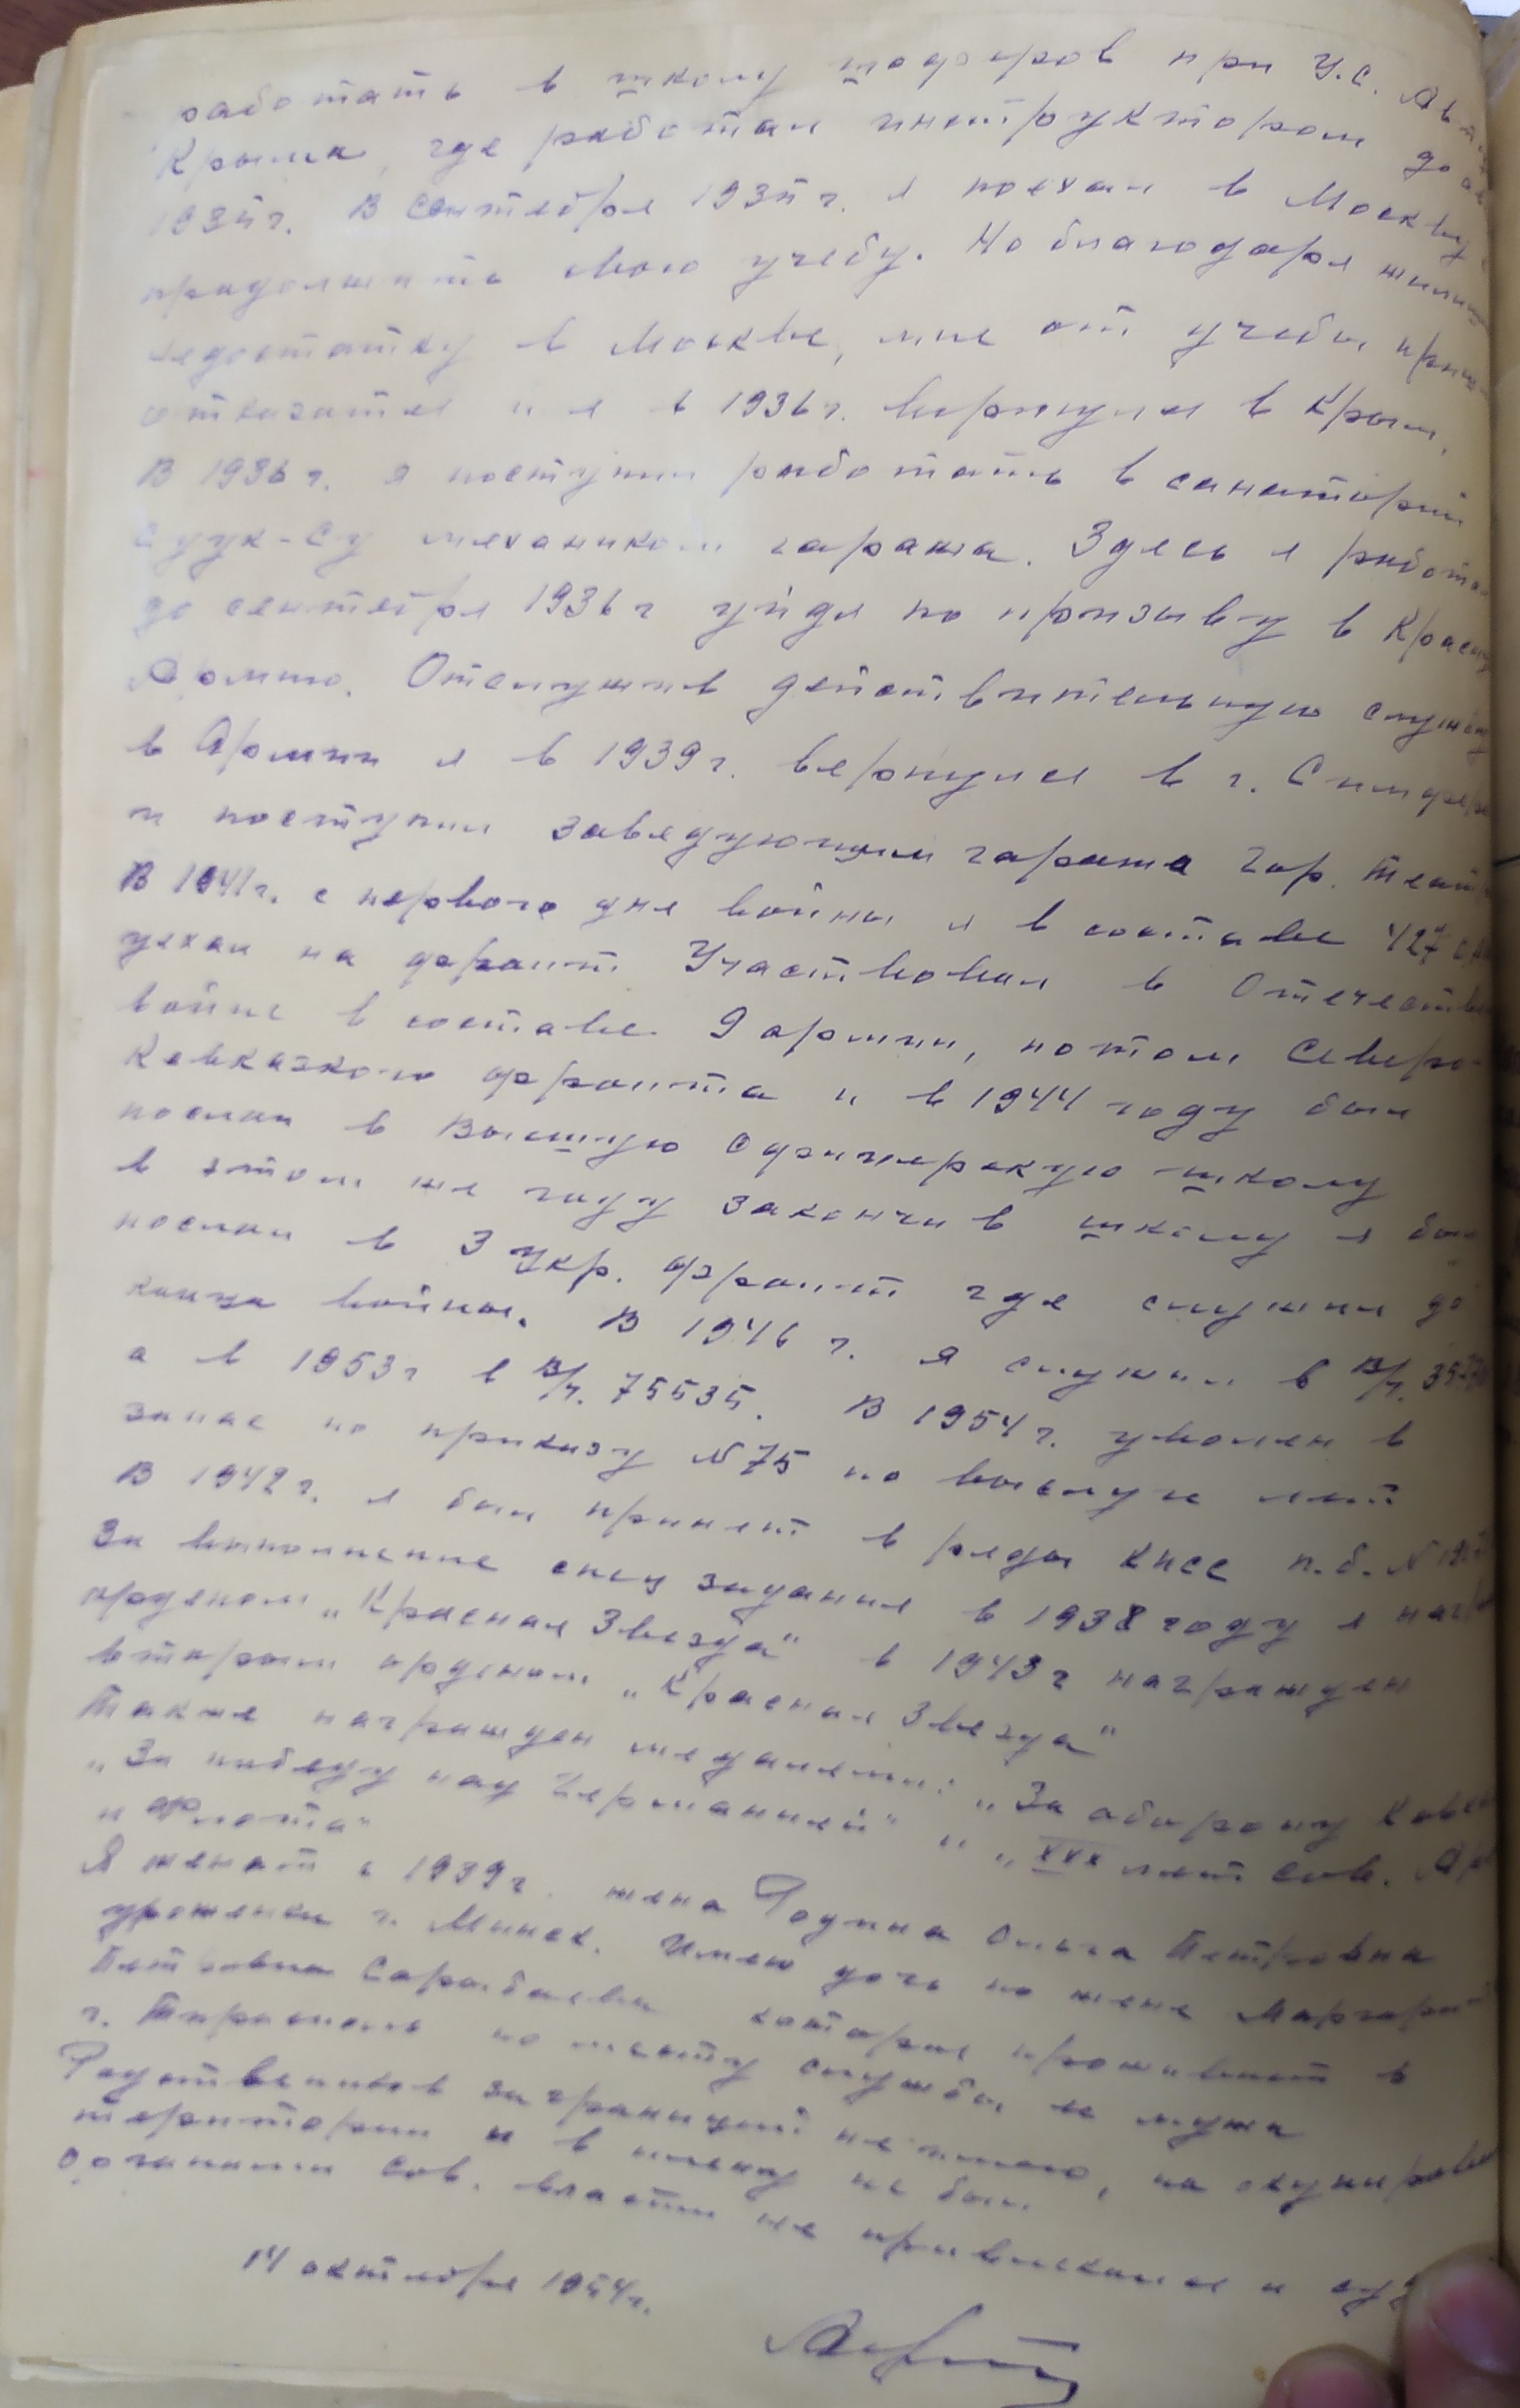 работать в школу шоферов при У.С. Авт
Крыма, где работал инструктором до
1935г. В сентябре 1935г. я поехал в Москву
продолжить свою учебу. Но благодаря жилищ
недостатку в Москве, мне от учебы приш
отказатся и я в 1936г. вернулся в Крым.
В 1936г. я поступил работать в санаторий
Суук-Су механиком гаража. Здесь я работал
до сентября 1936г уйдя по призыву в Красну
Армию. Отслужив действительную службу
в Армии я в 1939г. вернулся в г. Симферо
и поступил заведующим гаража Гор.
В 1941г. с первого дня войны я в составе 427
уехал на фронт Участвовал в Отечестве
войне в составе 9 армии, потом Северо-
Кавказкого фронта и в 1944 году был
послан в Высшую Офицерскую школу
в этом же году закончив школу я был
послан в 3 Укр. фронт где служил до
конца войны. В 1946 г. я служил в в/ч.
а в 1953г в в/ч. 75535. В 1954г. уволен в
запас по приказу №75 по выслуге лет
В 1942г. я был принят в ряды КПСС п.б. №
За выполнение спец задания в 1938 году я нагр
орденом „Красная Звезда" в 1943г награжден
вторым орденом „Красная Звезда"
Также награжден медалями: „За оборону Кавк
„За победу над Германией" и „XXX лет Сов. Ар
и Флота"
Я женат с 1939г. жена Родина Ольга Петровна
уроженка г. Минск. Имею дочь по жене Маргарит
Петровна которая проживает в
г. Тирасполь по месту службы ее мужа
Родственников заграницей не имею, на окупирова
територии и в плену не был.
Органами Сов. власти не привлекался и суд
14 октября 1954г.